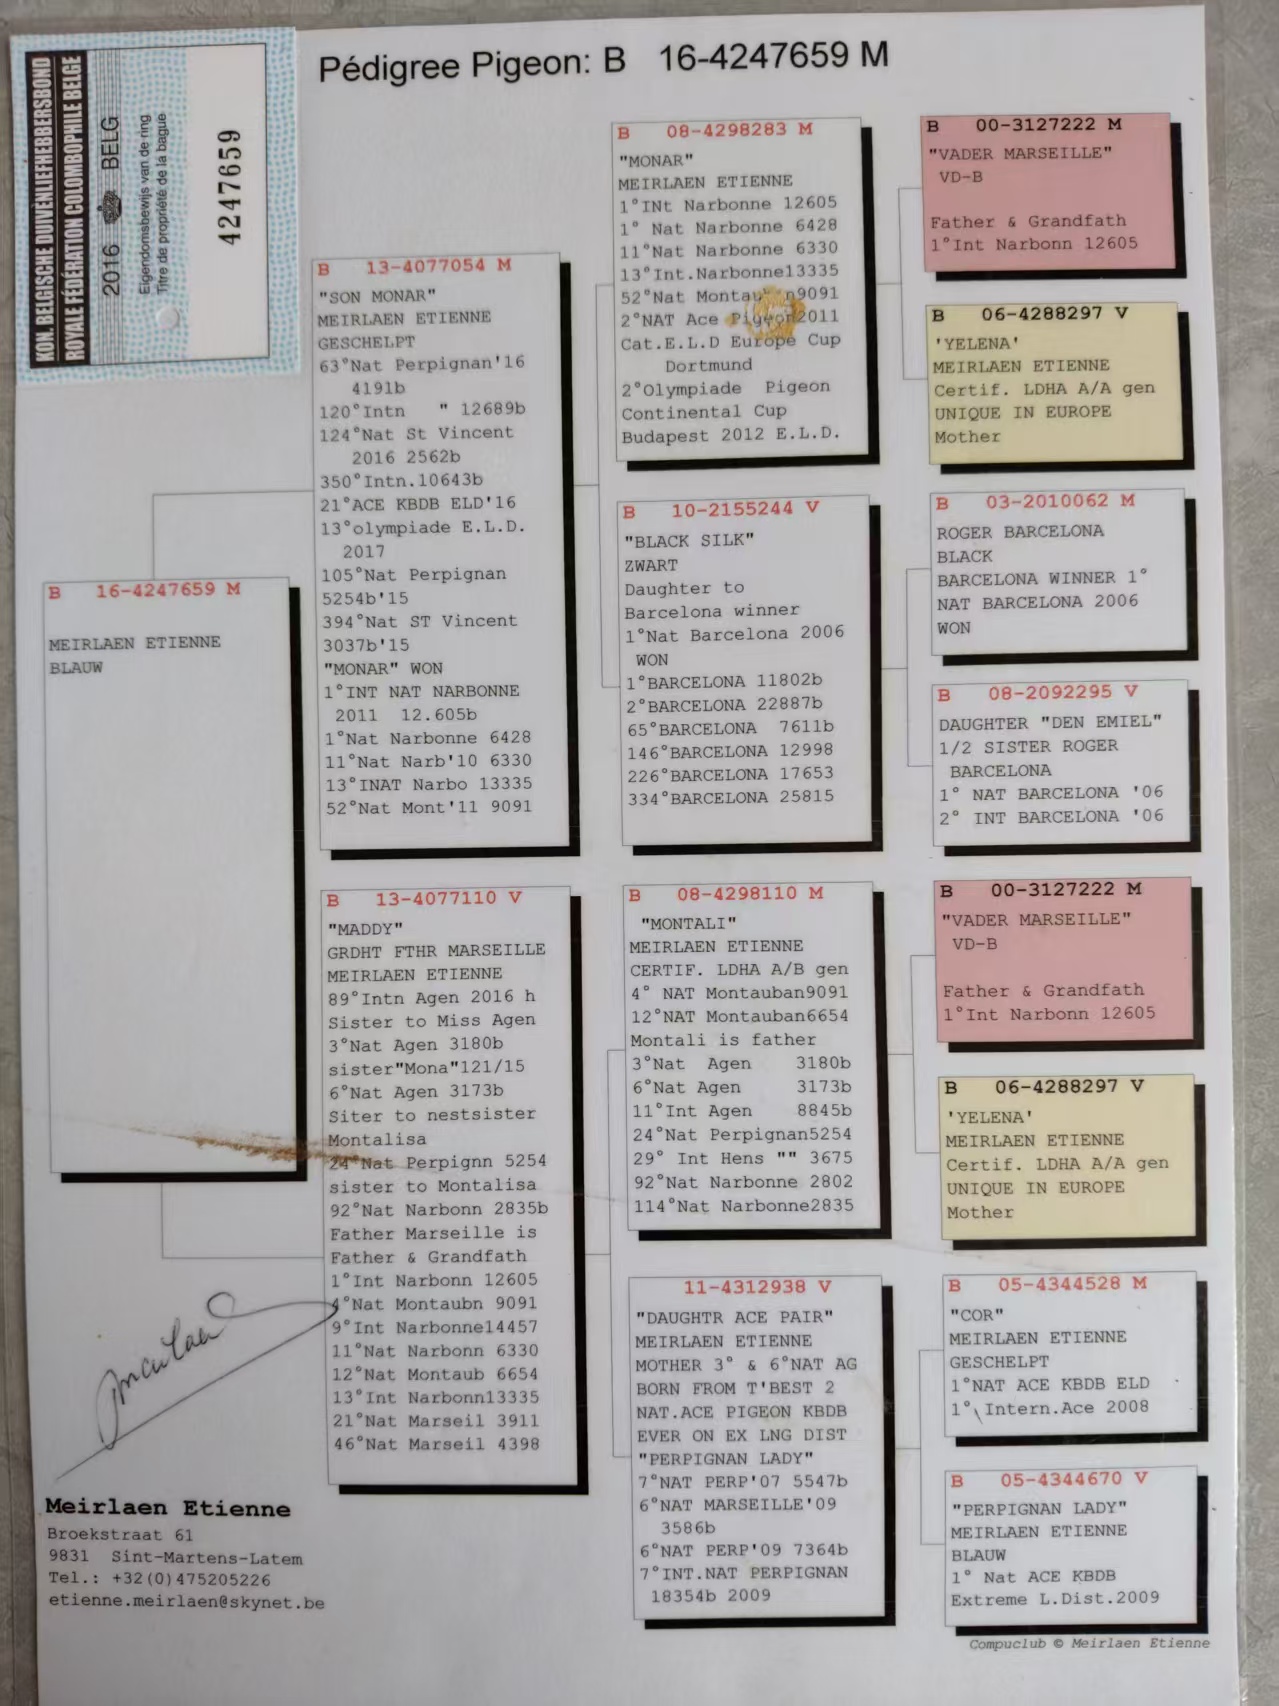 KON. BELGISCHE DUIVENLIEFHEBBERSBOND
ROYALE FÉDÉRATION COLOMBOPHILE BELGE
2016 BELG
Eigendomsbewijs van de ring
Titre de propriété de la bague
4247659
Pédigree Pigeon: B 16-4247659 M
B 16-4247659 M
MEIRLAEN ETIENNE
BLAUW
B 13-4077054 M
"SON MONAR"
MEIRLAEN ETIENNE
GESCHELPT
63°Nat Perpignan'16
4191b
120°Intn " 12689b
124°Nat St Vincent
2016 2562b
350°Intn.10643b
21°ACE KBDB ELD'16
13°olympiade E.L.D.
2017
105°Nat Perpignan
5254b'15
394°Nat ST Vincent
3037b'15
"MONAR" WON
1°INT NAT NARBONNE
2011 12.605b
1°Nat Narbonne 6428
11°Nat Narb'10 6330
13°INAT Narbo 13335
52°Nat Mont'11 9091
B 13-4077110 V
"MADDY"
GRDHT FTHR MARSEILLE
MEIRLAEN ETIENNE
89°Intn Agen 2016 h
Sister to Miss Agen
3°Nat Agen 3180b
sister"Mona"121/15
6°Nat Agen 3173b
Siter to nestsister
Montalisa
24°Nat Perpignn 5254
sister to Montalisa
92°Nat Narbonn 2835b
Father Marseille is
Father & Grandfath
1°Int Narbonn 12605
4°Nat Montaubn 9091
9°Int Narbonne14457
11°Nat Narbonn 6330
12°Nat Montaub 6654
13°Int Narbonn13335
21°Nat Marseil 3911
46°Nat Marseil 4398
B 08-4298283 M
"MONAR"
MEIRLAEN ETIENNE
1°INt Narbonne 12605
1° Nat Narbonne 6428
11°Nat Narbonne 6330
13°Int.Narbonne13335
52°Nat Montauban9091
2°NAT Ace Pigeon2011
Cat.E.L.D Europe Cup
Dortmund
2°Olympiade Pigeon
Continental Cup
Budapest 2012 E.L.D.
B 10-2155244 V
"BLACK SILK"
ZWART
Daughter to
Barcelona winner
1°Nat Barcelona 2006
WON
1°BARCELONA 11802b
2°BARCELONA 22887b
65°BARCELONA 7611b
146°BARCELONA 12998
226°BARCELONA 17653
334°BARCELONA 25815
B 08-4298110 M
"MONTALI"
MEIRLAEN ETIENNE
CERTIF. LDHA A/B gen
4° NAT Montauban9091
12°NAT Montauban6654
Montali is father
3°Nat Agen 3180b
6°Nat Agen 3173b
11°Int Agen 8845b
24°Nat Perpignan5254
29° Int Hens "" 3675
92°Nat Narbonne 2802
114°Nat Narbonne2835
11-4312938 V
"DAUGHTR ACE PAIR"
MEIRLAEN ETIENNE
MOTHER 3° & 6°NAT AG
BORN FROM T'BEST 2
NAT.ACE PIGEON KBDB
EVER ON EX LNG DIST
"PERPIGNAN LADY"
7°NAT PERP'07 5547b
6°NAT MARSEILLE'09
3586b
6°NAT PERP'09 7364b
7°INT.NAT PERPIGNAN
18354b 2009
B 00-3127222 M
"VADER MARSEILLE"
VD-B
Father & Grandfath
1°Int Narbonn 12605
B 06-4288297 V
'YELENA'
MEIRLAEN ETIENNE
Certif. LDHA A/A gen
UNIQUE IN EUROPE
Mother
B 03-2010062 M
ROGER BARCELONA
BLACK
BARCELONA WINNER 1°
NAT BARCELONA 2006
WON
B 08-2092295 V
DAUGHTER "DEN EMIEL"
1/2 SISTER ROGER
BARCELONA
1° NAT BARCELONA '06
2° INT BARCELONA '06
B 00-3127222 M
"VADER MARSEILLE"
VD-B
Father & Grandfath
1°Int Narbonn 12605
B 06-4288297 V
'YELENA'
MEIRLAEN ETIENNE
Certif. LDHA A/A gen
UNIQUE IN EUROPE
Mother
B 05-4344528 M
"COR"
MEIRLAEN ETIENNE
GESCHELPT
1°NAT ACE KBDB ELD
1°\Intern.Ace 2008
B 05-4344670 V
"PERPIGNAN LADY"
MEIRLAEN ETIENNE
BLAUW
1° Nat ACE KBDB
Extreme L.Dist.2009
Meirlaen Etienne
Broekstraat 61
9831 Sint-Martens-Latem
Tel.: +32(0)475205226
etienne.meirlaen@skynet.be
Compuclub © Meirlaen Etienne